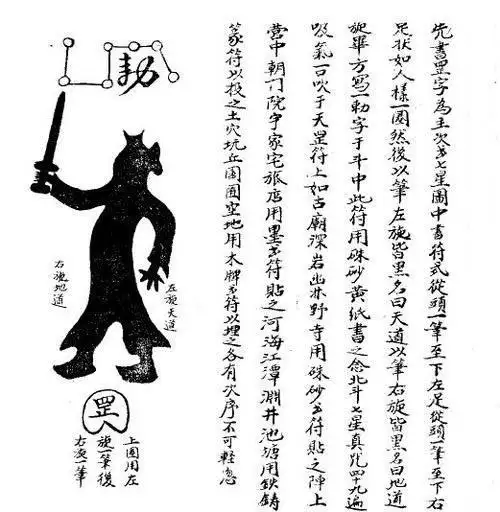 先書罡字為主次書七星圖中書符式從頭一筆至下左足從頭一筆至下右
足狀如人樣一圈然後以筆左旋皆黑名曰天道以筆右旋皆黑名曰地道
旋畢方寫一勅字于斗中此符用硃砂黃紙書之念北斗七星真咒四十九遍
吸氣一口吹于天罡符上如古廟深岩幽野寺用硃砂書符貼之陣上
營中朝門院宇家宅旅店用墨書符貼之河海江潭淵井池塘用鉄鑄
篆符以投之土穴坑丘園囿空地用木牌書符以埋之各有次序不可輕忽
勅
左旋天道
右旋地道
罡
上圈用左
旋一筆後
右旋一筆